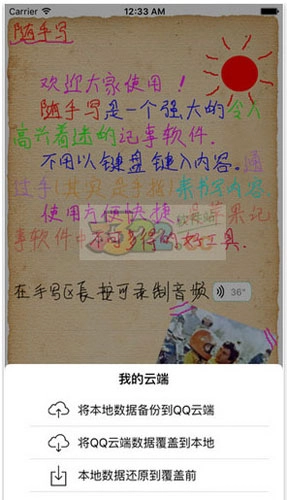 Carrier 12:33 AM
随手写
欢迎大家使用！
随手写是一个强大的令人
高兴着迷的记事软件.
不用以键盘键入内容.通
过手(其实是手指)来书写内容.
使用方便快捷 是苹果记
事软件中不可多得的好工具.
在手写区长按可录制音频 36"
我的云端
将本地数据备份到QQ云端
将QQ云端数据覆盖到本地
本地数据还原到覆盖前